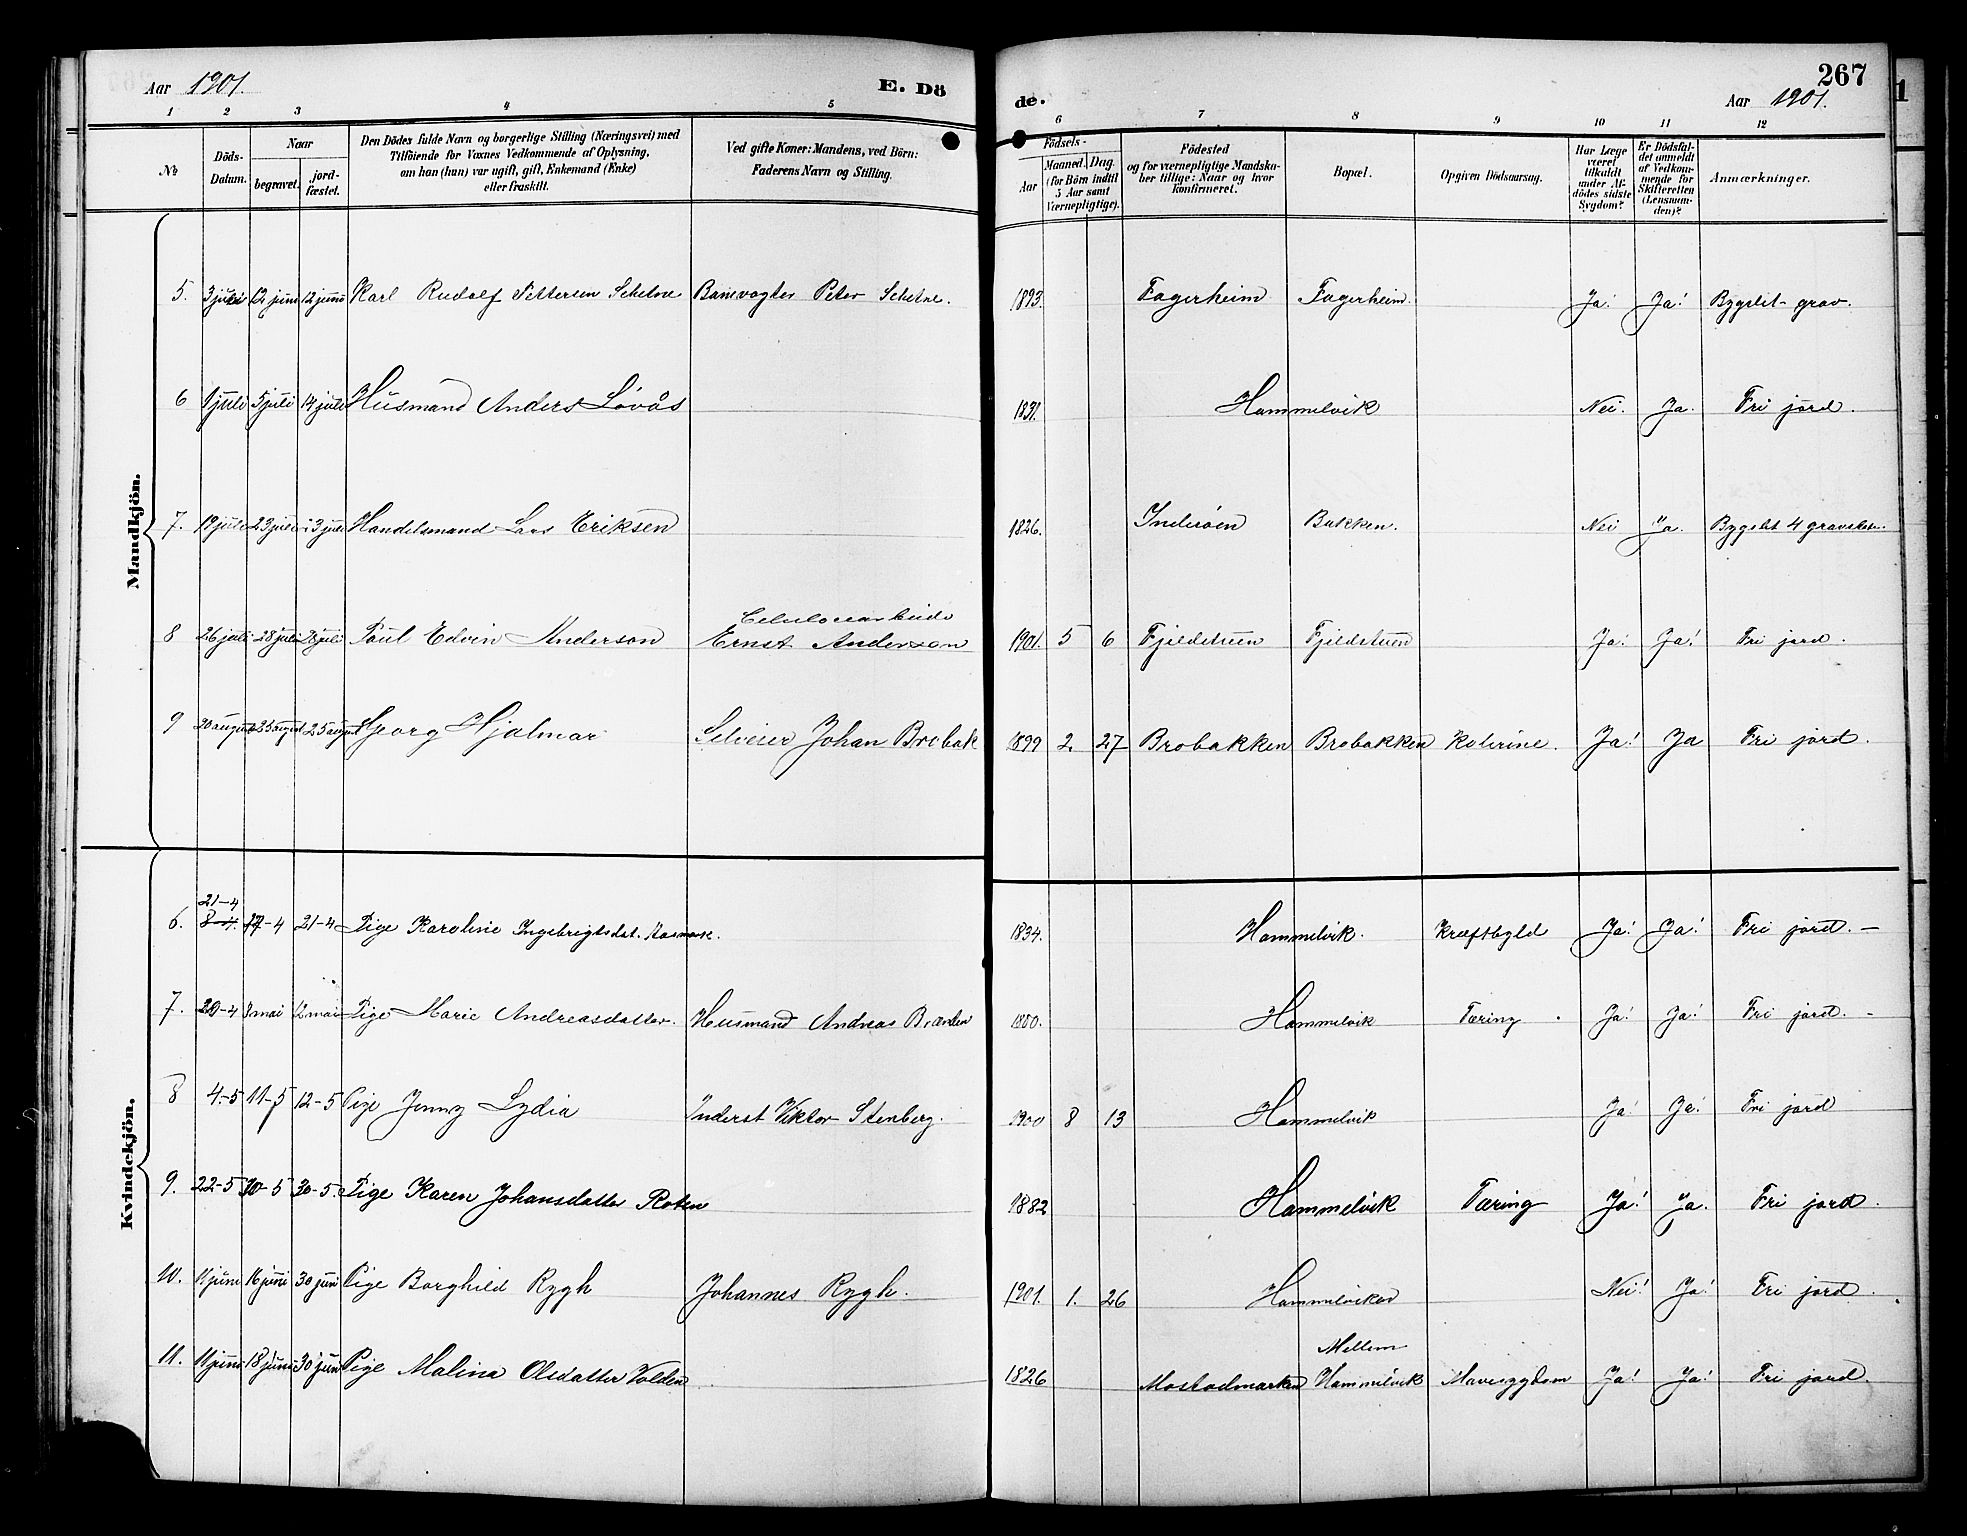 Aar 1901. E. Dö
de. Aar 1901. 267
1 2 3 4 5
6 7 8 9 10 11 12
No Döds-Datum. Naar begravet. jord-fæstet. Den Dödes fulde Navn og borgerlige Stilling (Næringsvei) med Tilföiende for Voxnes Vedkommende af Oplysning, om han (hun) var ugift, gift, Enkemand (Enke) eller fraskilt. Ved gifte Koner: Mandens, ved Börn: Faderens Navn og Stilling.
Födsels- Aar Maaned. Dag. (for Börn indtil 5 Aar samt Værnepligtige). Födested og for værnepligtige Mandska-ber tillige: Naar og hvor konfirmeret. Bopæl. Opgiven Dödsaarsag. Har Læge været tilkaldt under Af-dödes sidste Sygdom? Er Dödsfal-det anmeldt af Vedkom-mende for Skifteretten (Lensman-den)? Anmærkninger.
Mandkjön.
5. 3 juni 12 juni 12 juni Karl Rudolf Pettersen Schetne Banevogter Peter Schetne. 1893. Fagerheim Fagerheim. Ja! Ja! Bygslet grav.
6 1 juli 5 juli 14 juli Husmand Anders Lövås 1831. Hammelvik Nei. Ja. Fri jord.
7. 19 juli 23 juli 23 juli Handelsmand Lars Eriksen 1826. Inderöen Bakken. Nei Ja. Bygslet 4 gravsteder.
Celulosearbeide
8 26 juli 28 juli 28 juli Paul Edvin Anderson Ernst Anderson 1901. 5 6 Fjeldstuen Fjeldstuen Ja! Ja! Fri jord.
9 20 august 25 august 25 august Georg Hjalmar Selveier Johan Brobak 1899 2 27 Brobakken Brobakken Kolerine. Ja! Ja Fri jord.
Kvindekjön.
21-4
6. 8-4. 17-4 21-4 Pige Karoline Ingebrigtsdat. 1834. Hammelvik. Kræftbyld Ja! Ja! Fri jord. —
7. 29-4 8 mai 12 mai Pige Marie Andreasdatter. Husmand Andreas Brænden 1880. Hammelvik Tæring. Ja! Ja! Fri jord. -
8 4-5 11-5 12-5 Pige Jonny Lydia Inderst Viktor Stenberg. 1900 8 13 Hammelvik Ja! Ja! Fri jord
9. 22-5 30-5 30-5. Pige Karen Johansdatter Roten 1882 Hammelvik Tæring Ja! Ja. Fri jord.
10. 11 juni 16 juni 30 juni Pige Borghild Rygh Johannes Rygh. 1901. 1. 26 Hammelviken Nei! Ja! Fri jord.
Mellem
11. 11 juni 18 juni 30 juni Pige Malina Olsdatter Volden 1826 Mostadmarken Hammelvik Mavesygdom Ja! Ja! Fri jord.